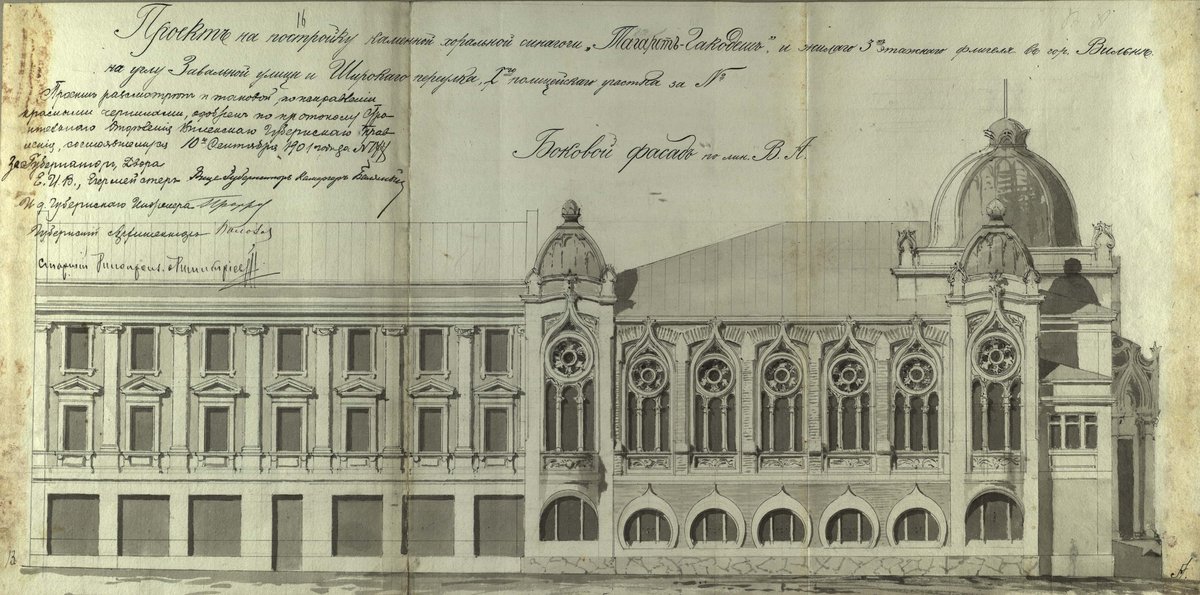 16
Проектъ на постройку каменной хоральной синагоги „Тагартъ-Гакодешъ", и жилаго 3хъ этажнаго флигеля въ гор. Вильнѣ
на углу Завальной улицы и Широкаго переулка, полицейскаго участка за №
Проектъ разсмотрѣнъ и таковой, по исправленіи
красными чернилами, одобренъ по протоколу
Отдѣленія Виленскаго Губернскаго Прав
ленія, состоявшемуся 10го Сентября 1901 года за №
За Губернатора, Двора
Е.И.В., Егермейстеръ Вице Губернаторъ Камергеръ
И д. Губернскаго Инженера
Губернскій Архитекторъ
Боковой фасадъ по лин. В.А.
В
А.